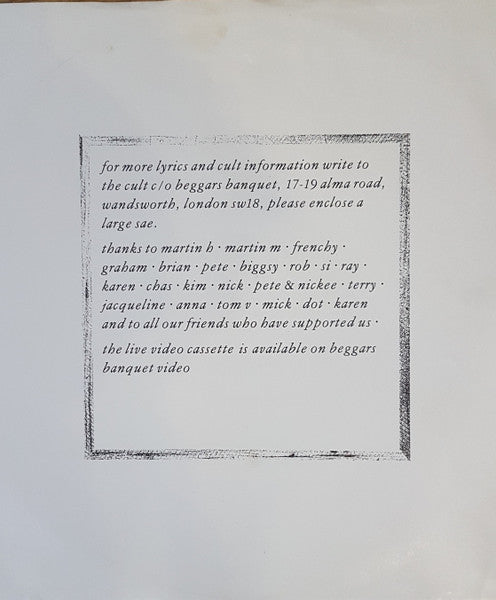 for more lyrics and cult information write to
the cult c/o beggars banquet, 17-19 alma road,
wandsworth, london sw18, please enclose a
large sae.
thanks to martin h · martin m · frenchy ·
graham · brian · pete · biggsy · rob · si · ray ·
karen · chas · kim · nick · pete & nickee · terry ·
jacqueline · anna · tom v · mick · dot · karen
and to all our friends who have supported us ·
the live video cassette is available on beggars
banquet video